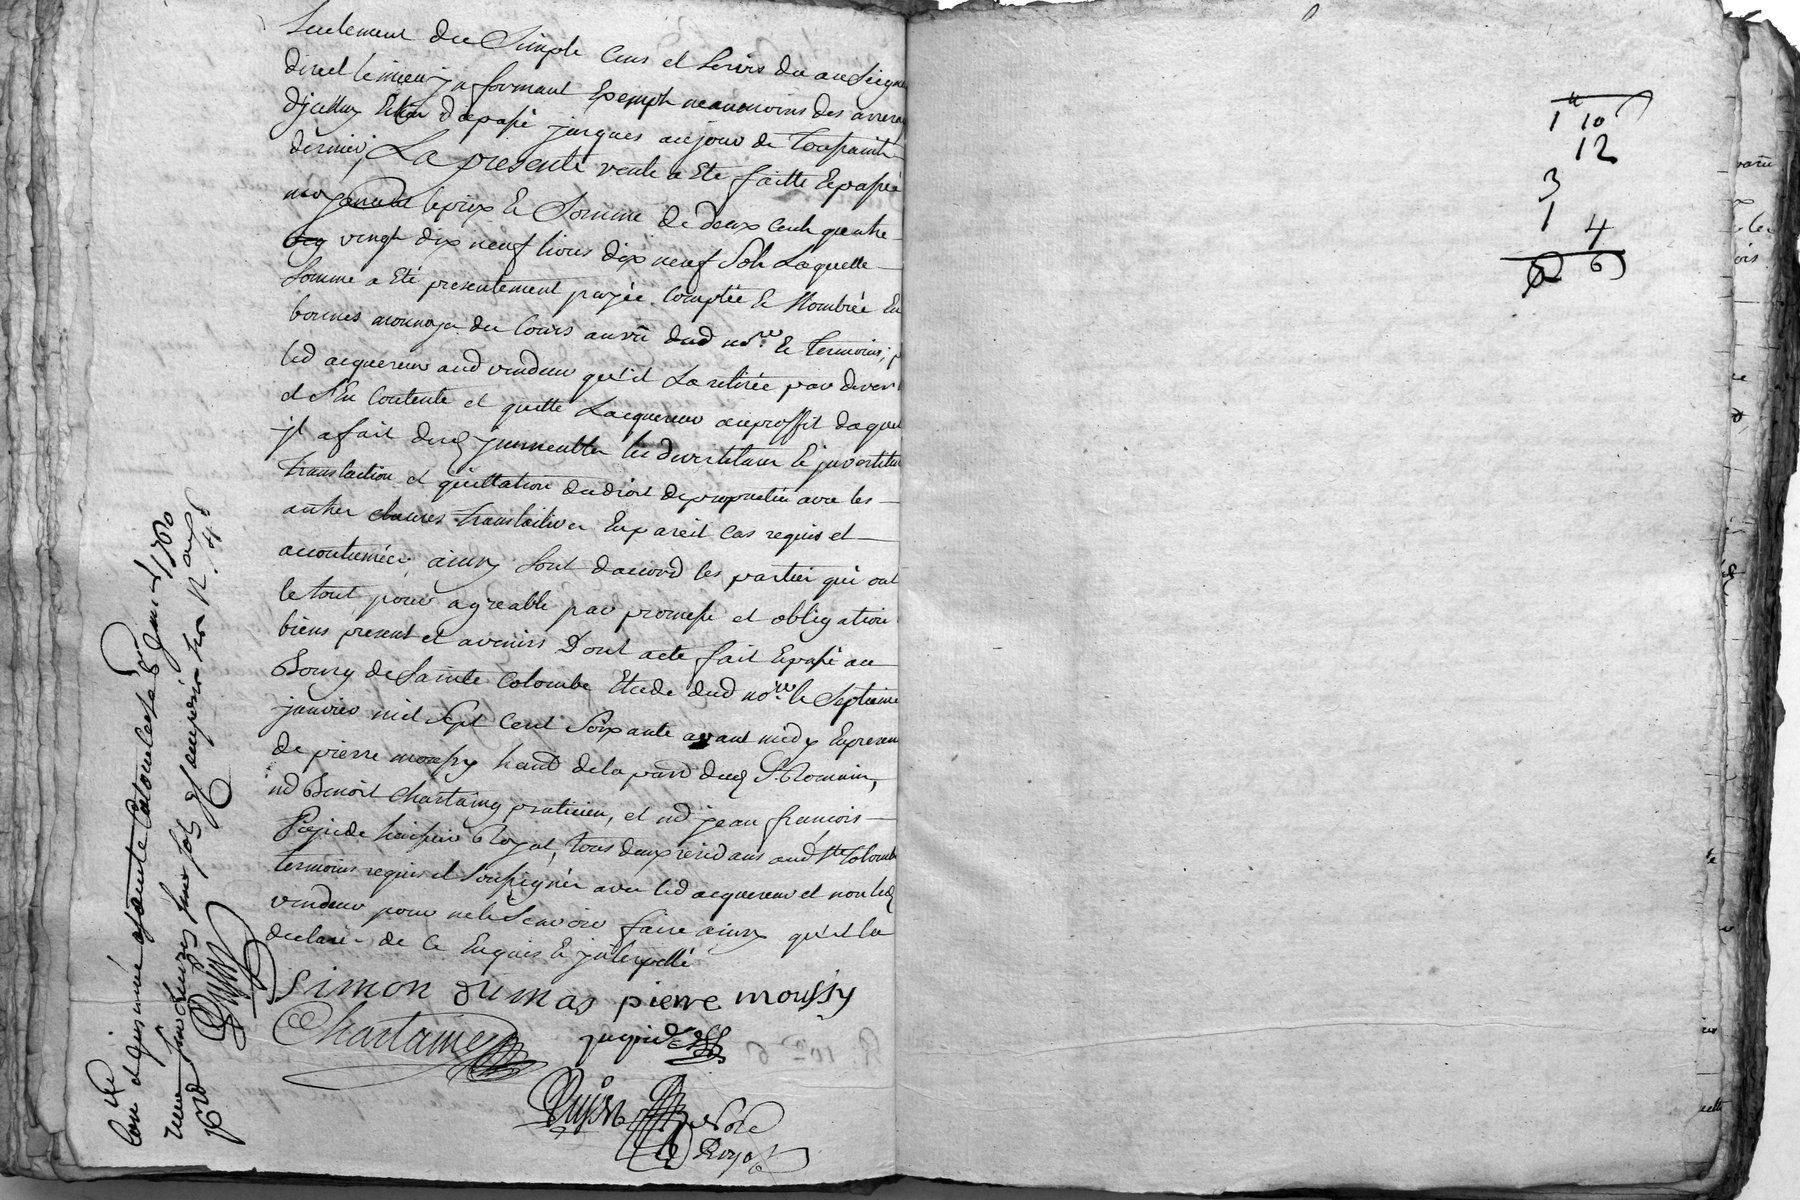 Seulement du Simple Cens et Servis du au Seigneu
direct le mieux jnformant Exempt neanmoins des arrera
djcelluy Et du passé jusques aujour de Toussaint
dernier, La presente vente a Eté faitte Epassée
moyenant leprix Et Somme de deux Cent quatre
vingt dix neuf livres dix neuf Sols Laquelle
Somme a Eté presentement payée Comptée Et Nombrée En
bonnes monnoye du Cours au vû dud nore Et Temoins, p
led acquereur aud vendeur qu'il La retirée par devers
et S'En Contente et quitte Lacquereur auproffit duquel
jl a fait les devestiture Et jnvestiture
translaction et quittation dudroit depropriettée avec les
autres clauses translatives Enpareil Cas requis et
accoutumées ainsy Sont daccord les parties qui ont
le tout pour agreable par promesse et obligation
biens present et avenirs Dont acte fait Epassé au
Bourg de Sainte Colombe Etude dud nore le Septieme
janvier mil Sept Cent Soixante avant midy Enpresen
de pierre moussy habt dela parr dud St Romain,
md Benoit Chartaing praticien, et md jean francois
Pugnide huissier Royal, tous deux residans aud Ste Colombe
temoins requis et Soussignés avec led acquereur et non led
vendeur pour nele Scavoir faire ainsy qu'il la
declaré de Ce Enquis Et jnterpellé
Simon dumas pierre moussy
Chartaing
pugnide
Dujon Nore
Royal
Con.lé et jnsinué a Sainte Colombe le 8 janv.r 1760
reçu
Dujon
1 10
12
3
1 4
6